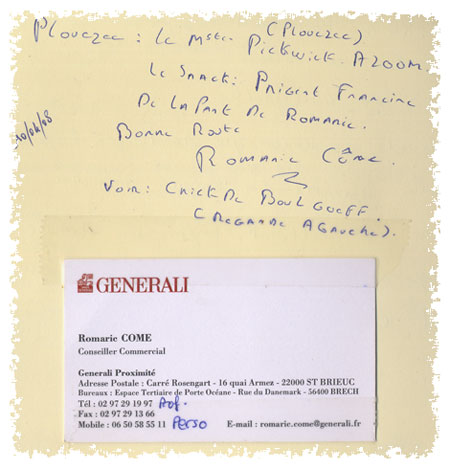 (Plouezec)
Plouezec : Le Mster Pickwick. A 200m
Le Snack : Prigent Francine
De La Part De Romaric.
Bonne Route
10/04/08
Romaric Côme.
Voir : Crick De Boulgueff.
(Regarde A Gauche).
GENERALI
Romaric COME
Conseiller Commercial
Generali Proximité
Adresse Postale : Carré Rosengart - 16 quai Armez - 22000 ST BRIEUC
Bureaux : Espace Tertiaire de Porte Océane - Rue du Danemark - 56400 BRECH
Tél : 02 97 29 19 97
Fax : 02 97 29 13 66
Mobile : 06 50 58 55 11 PERSO E-mail : romaric.come@generali.fr